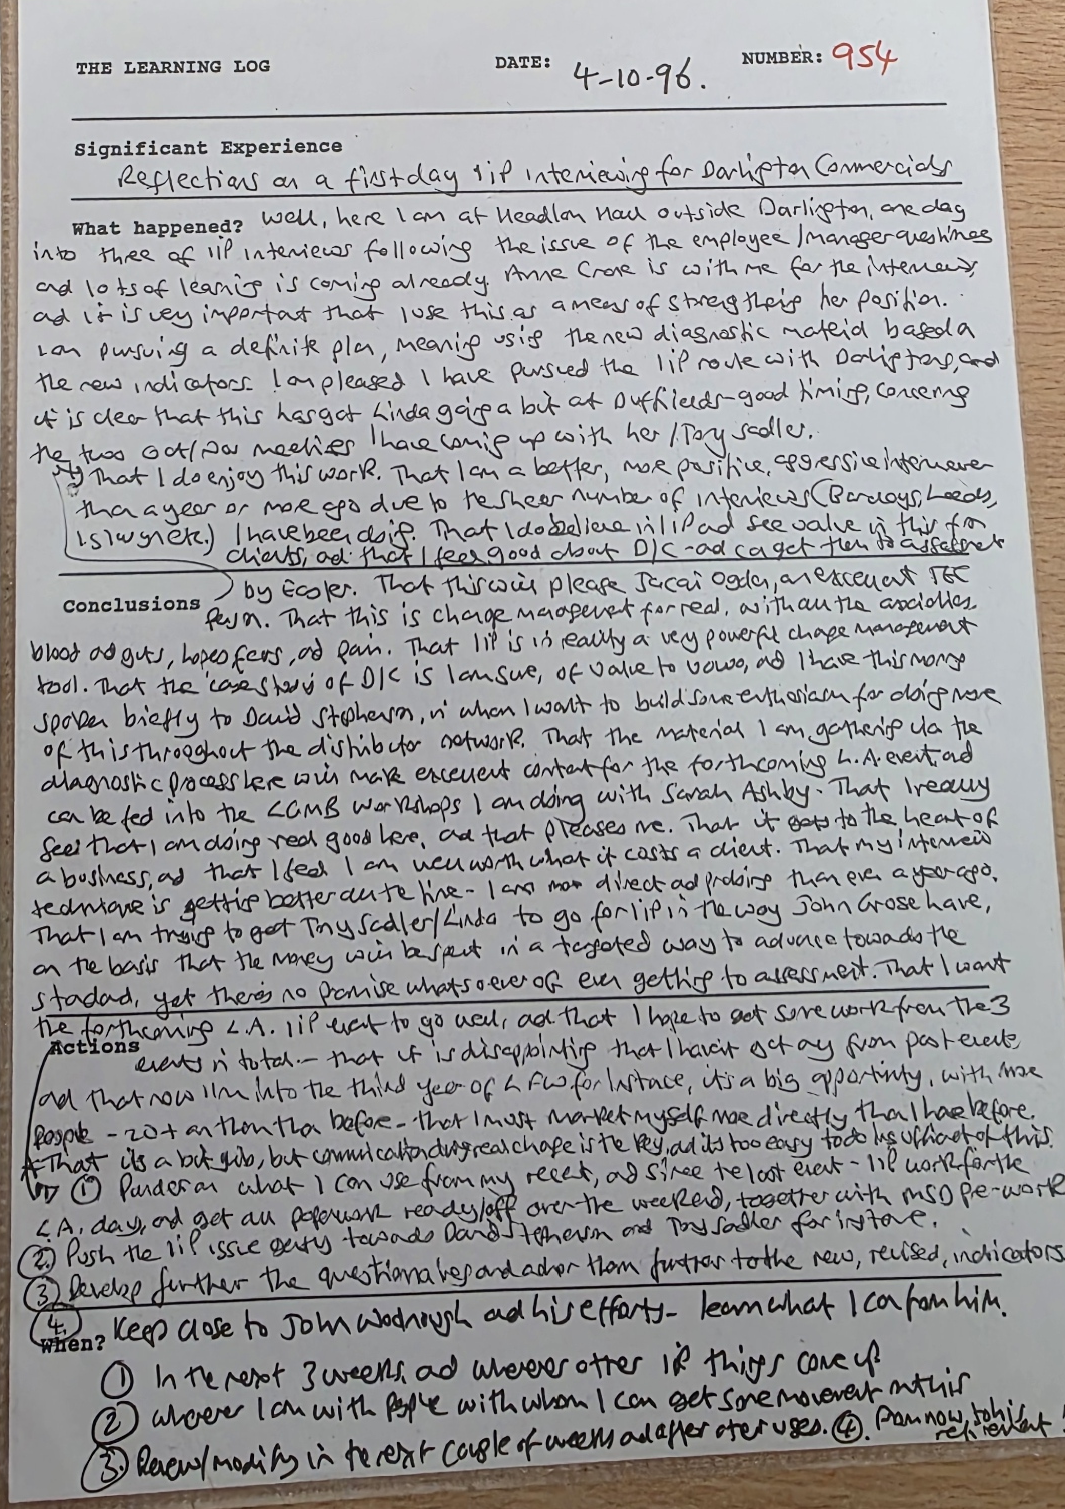 THE LEARNING LOG DATE: 4-10-96. NUMBER: 954
Significant Experience
Reflections on a first day IIP interviewing for Darlington Commercials
What happened? Well, here I am at Headlam Hall outside Darlington, one day
into three of IIP interviews following the issue of the employee/manager questionnaires
and lots of learning is coming already. Anne Crone is with me for the interviews,
and it is very important that I use this as a means of strengthening her position.
I am pursuing a definite plan, meaning using the new diagnostic material based on
the new indicators. I am pleased I have pursued the IIP route with Darlington, and
it is clear that this has got Linda going a bit at Duffields - good timing, concerning
the two Oct/Nov meetings I have coming up with her/Tony Sadler.
That I do enjoy this work. That I am a better, more positive, aggressive interviewer
than a year or more ago due to the sheer number of interviews (Barclays, Leeds,
etc.) I have been doing. That I do believe in IIP and see value in this for
clients, and that I feel good about D/C - and can get them to assessment
by Easter. That this will please Jacqui Ogden, an excellent TEC
Conclusions
person. That this is change management for real, with all the anxieties,
blood and guts, hopes, fears, and pain. That IIP is in reality a very powerful change management
tool. That the 'case study' of D/C is I am sure, of value to Volvo, and I have this morning
spoken briefly to David Stephenson, in whom I want to build some enthusiasm for doing more
of this throughout the distributor network. That the material I am gathering via the
diagnostic process here will make excellent content for the forthcoming L.A. event, and
can be fed into the LGMB workshops I am doing with Sarah Ashby. That I really
feel that I am doing real good here, and that pleases me. That it gets to the heart of
a business, and that I feel I am well worth what it costs a client. That my interview
technique is getting better all the time - I am more direct and probing than even a year ago.
That I am trying to get Tony Sadler/Linda to go for IIP in the way John Grose have,
on the basis that the money will be spent in a targeted way to advance towards the
standard, yet there's no promise whatsoever of ever getting to assessment. That I want
the forthcoming L.A. IIP event to go well, and that I hope to get some work from the 3
Actions
events in total - that it is disappointing that I haven't got any from past events
and that now I'm into the third year of LFW for instance, it's a big opportunity, with more
people - 20+ on than before - that I must market myself more directly than I have before.
That it's a bit glib, but communication during real change is the key, and it's too easy to do insufficient of this.
① Ponder on what I can use from my recent, and since the last event - IIP work for the
L.A. day, and get all paperwork ready/off over the weekend, together with MSD pre-work
② Push the IIP issue gently towards David Stephenson and Tony Sadler for instance.
③ Develop further the questionnaires and anchor them further to the new, revised, indicators
④ Keep close to John Woodrough and his efforts - learn what I can from him.
When?
① In the next 3 weeks, and wherever other IIP things come up
② Wherever I am with people with whom I can get some movement on this
③ Renew/modify in the next couple of weeks and after other uses. ④ From now, to his
retirement!